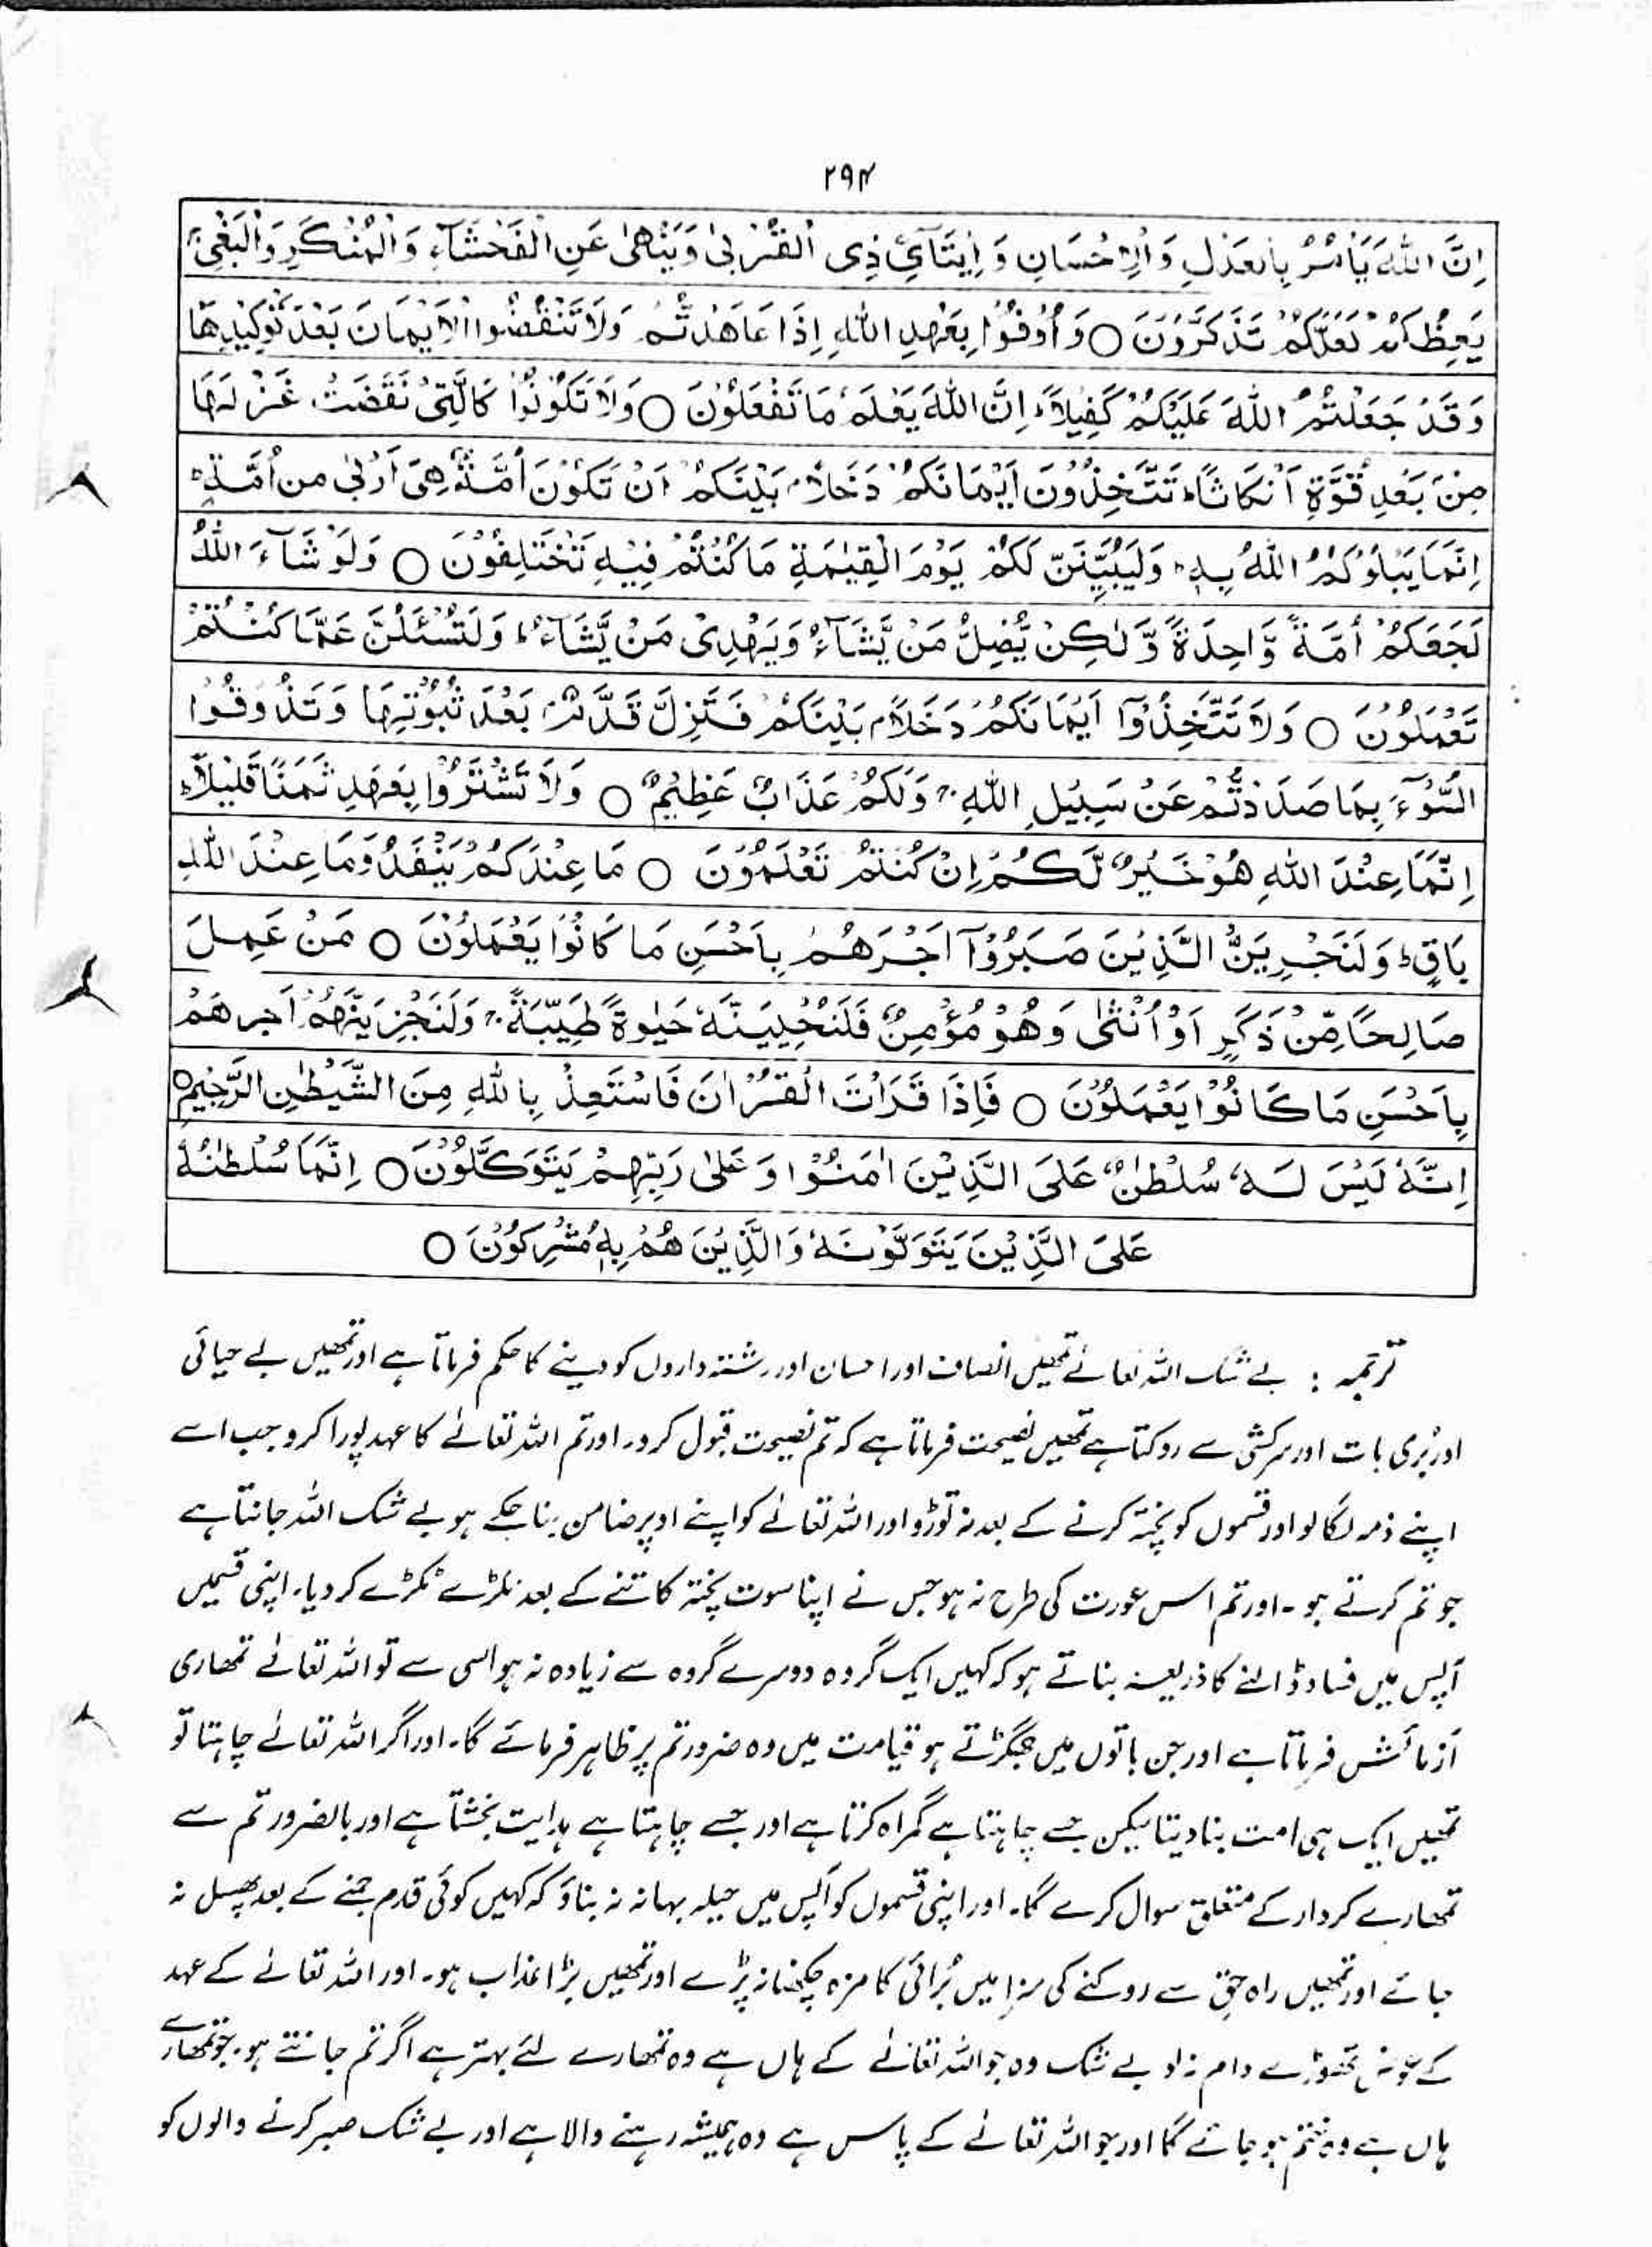 ۲۹۴
اِنَّ اللّٰهَ يَأْمُرُ بِالْعَدْلِ وَالْاِحْسَانِ وَ اِيْتَآئِ ذِى الْقُرْبٰى وَيَنْهٰى عَنِ الْفَحْشَآءِ وَالْمُنْكَرِ وَالْبَغْىِ ۚ
يَعِظُكُمْ لَعَلَّكُمْ تَذَكَّرُوْنَ ○ وَ اَوْفُوْا بِعَهْدِ اللّٰهِ اِذَا عَاهَدْتُّمْ وَلَا تَنْقُضُوا الْاَيْمَانَ بَعْدَ تَوْكِيْدِهَا
وَ قَدْ جَعَلْتُمُ اللّٰهَ عَلَيْكُمْ كَفِيْلًا ؕ اِنَّ اللّٰهَ يَعْلَمُ مَا تَفْعَلُوْنَ ○ وَلَا تَكُوْنُوْا كَالَّتِىْ نَقَضَتْ غَزْلَهَا
مِنْۢ بَعْدِ قُوَّةٍ اَنْكَاثًا ؕ تَتَّخِذُوْنَ اَيْمَانَكُمْ دَخَلًاۢ بَيْنَكُمْ اَنْ تَكُوْنَ اُمَّةٌ هِىَ اَرْبٰى من اُمَّةٍ ؕ
اِنَّمَا يَبْلُوْكُمُ اللّٰهُ بِهٖ ؕ وَلَيُبَيِّنَنَّ لَكُمْ يَوْمَ الْقِيٰمَةِ مَا كُنْتُمْ فِيْهِ تَخْتَلِفُوْنَ ○ وَلَوْ شَآءَ اللّٰهُ
لَجَعَلَكُمْ اُمَّةً وَّاحِدَةً وَّلٰكِنْ يُّضِلُّ مَنْ يَّشَآءُ وَيَهْدِىْ مَنْ يَّشَآءُ ؕ وَلَتُسْئَلُنَّ عَمَّا كُنْتُمْ
تَعْمَلُوْنَ ○ وَلَا تَتَّخِذُوْۤا اَيْمَانَكُمْ دَخَلًاۢ بَيْنَكُمْ فَتَزِلَّ قَدَمٌۢ بَعْدَ ثُبُوْتِهَا وَتَذُوْقُوا
السُّوْٓءَ بِمَا صَدَدْتُّمْ عَنْ سَبِيْلِ اللّٰهِ ۚ وَلَكُمْ عَذَابٌ عَظِيْمٌ ○ وَلَا تَشْتَرُوْا بِعَهْدِ ثَمَنًا قَلِيْلًا ؕ
اِنَّمَا عِنْدَ اللّٰهِ هُوَ خَيْرٌ لَّكُمْ اِنْ كُنْتُمْ تَعْلَمُوْنَ ○ مَا عِنْدَكُمْ يَنْفَدُ وَمَا عِنْدَ اللّٰهِ
بَاقٍ ؕ وَلَنَجْزِيَنَّ الَّذِيْنَ صَبَرُوْۤا اَجْرَهُمْ بِاَحْسَنِ مَا كَانُوْا يَعْمَلُوْنَ ○ مَنْ عَمِلَ
صَالِحًا مِّنْ ذَكَرٍ اَوْ اُنْثٰى وَهُوَ مُؤْمِنٌ فَلَنُحْيِيَنَّهٗ حَيٰوةً طَيِّبَةً ۚ وَلَنَجْزِيَنَّهُمْ اَجرهَمْ
بِاَحْسَنِ مَا كَانُوْا يَعْمَلُوْنَ ○ فَاِذَا قَرَاْتَ الْقُرْاٰنَ فَاسْتَعِذْ بِاللّٰهِ مِنَ الشَّيْطٰنِ الرَّجِيْمِ ○
اِنَّهٗ لَيْسَ لَهٗ سُلْطٰنٌ عَلَى الَّذِيْنَ اٰمَنُوْا وَ عَلٰى رَبِّهِمْ يَتَوَكَّلُوْنَ ○ اِنَّمَا سُلْطٰنُهٗ
عَلَى الَّذِيْنَ يَتَوَلَّوْنَهٗ وَالَّذِيْنَ هُمْ بِهٖ مُشْرِكُوْنَ ○
ترجمہ : بے شک اللہ تعالٰے تمھیں انصاف اور احسان اور رشتہ داروں کو دینے کا حکم فرماتا ہے اور تمھیں بے حیائی
اور بُری بات اور سرکشی سے روکتا ہے تمھیں نصیحت فرماتا ہے کہ تم نصیحت قبول کرو۔ اور تم اللہ تعالٰے کا عہد پورا کرو جب اسے
اپنے ذمہ لگا لو اور قسموں کو پختہ کرنے کے بعد نہ توڑو اور اللہ تعالٰے کو اپنے اوپر ضامن بنا چکے ہو بے شک اللہ جانتا ہے
جو تم کرتے ہو ۔ اور تم اس عورت کی طرح نہ ہو جس نے اپنا سوت پختہ کاتنے کے بعد ٹکڑے ٹکڑے کر دیا۔ اپنی قسمیں
آپس میں فساد ڈالنے کا ذریعہ بناتے ہو کہ کہیں ایک گروہ دوسرے گروہ سے زیادہ نہ ہو اسی سے تو اللہ تعالٰے تمھاری
آزمائش فرماتا ہے اور جن باتوں میں جھگڑتے ہو قیامت میں وہ ضرور تم پر ظاہر فرمائے گا۔ اور اگر اللہ تعالٰے چاہتا تو
تمھیں ایک ہی امت بنا دیتا لیکن جسے چاہتا ہے گمراہ کرتا ہے اور جسے چاہتا ہے ہدایت بخشتا ہے اور بالضرور تم سے
تمھارے کردار کے متعلق سوال کرے گا۔ اور اپنی قسموں کو آپس میں حیلہ بہانہ نہ بناؤ کہ کہیں کوئی قدم جمنے کے بعد پھسل نہ
جائے اور تمھیں راہ حق سے روکنے کی سزا میں بُرائی کا مزہ چکھنا نہ پڑے اور تمھیں بڑا عذاب ہو۔ اور اللہ تعالٰے کے عہد
کے عوض تھوڑے دام نہ لو بے شک وہ جو اللہ تعالٰے کے ہاں ہے وہ تمھارے لئے بہتر ہے اگر تم جانتے ہو۔ جو تمھارے
ہاں ہے وہ ختم ہو جائے گا اور جو اللہ تعالٰے کے پاس ہے وہ ہمیشہ رہنے والا ہے اور بے شک صبر کرنے والوں کو